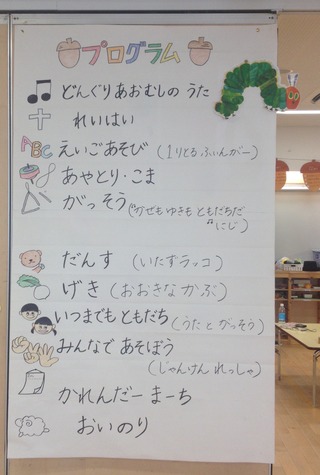 プログラム
どんぐりあおむしの うた
れいはい
ABC えいごあそび (1りとる ふぃんがー)
あやとり・こま
がっそう (かぜも ゆきも ともだちだ
にじ)
だんす (いたずラッコ)
げき (おおきな かぶ)
いつまでも ともだち (うた と がっそう)
みんなで あそぼう
(じゃんけん れっしゃ)
かれんだー まーち
おいのり